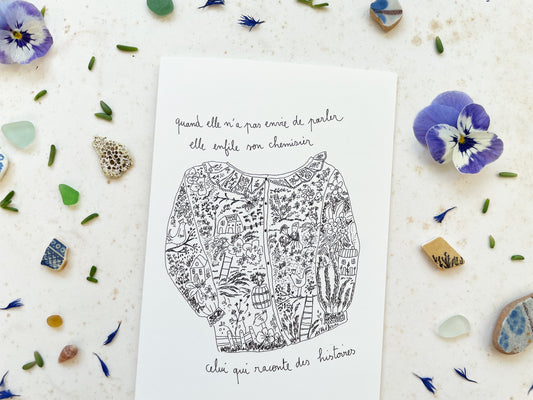 quand elle n'a pas envie de parler
elle enfile son chemisier
celui qui raconte des histoires